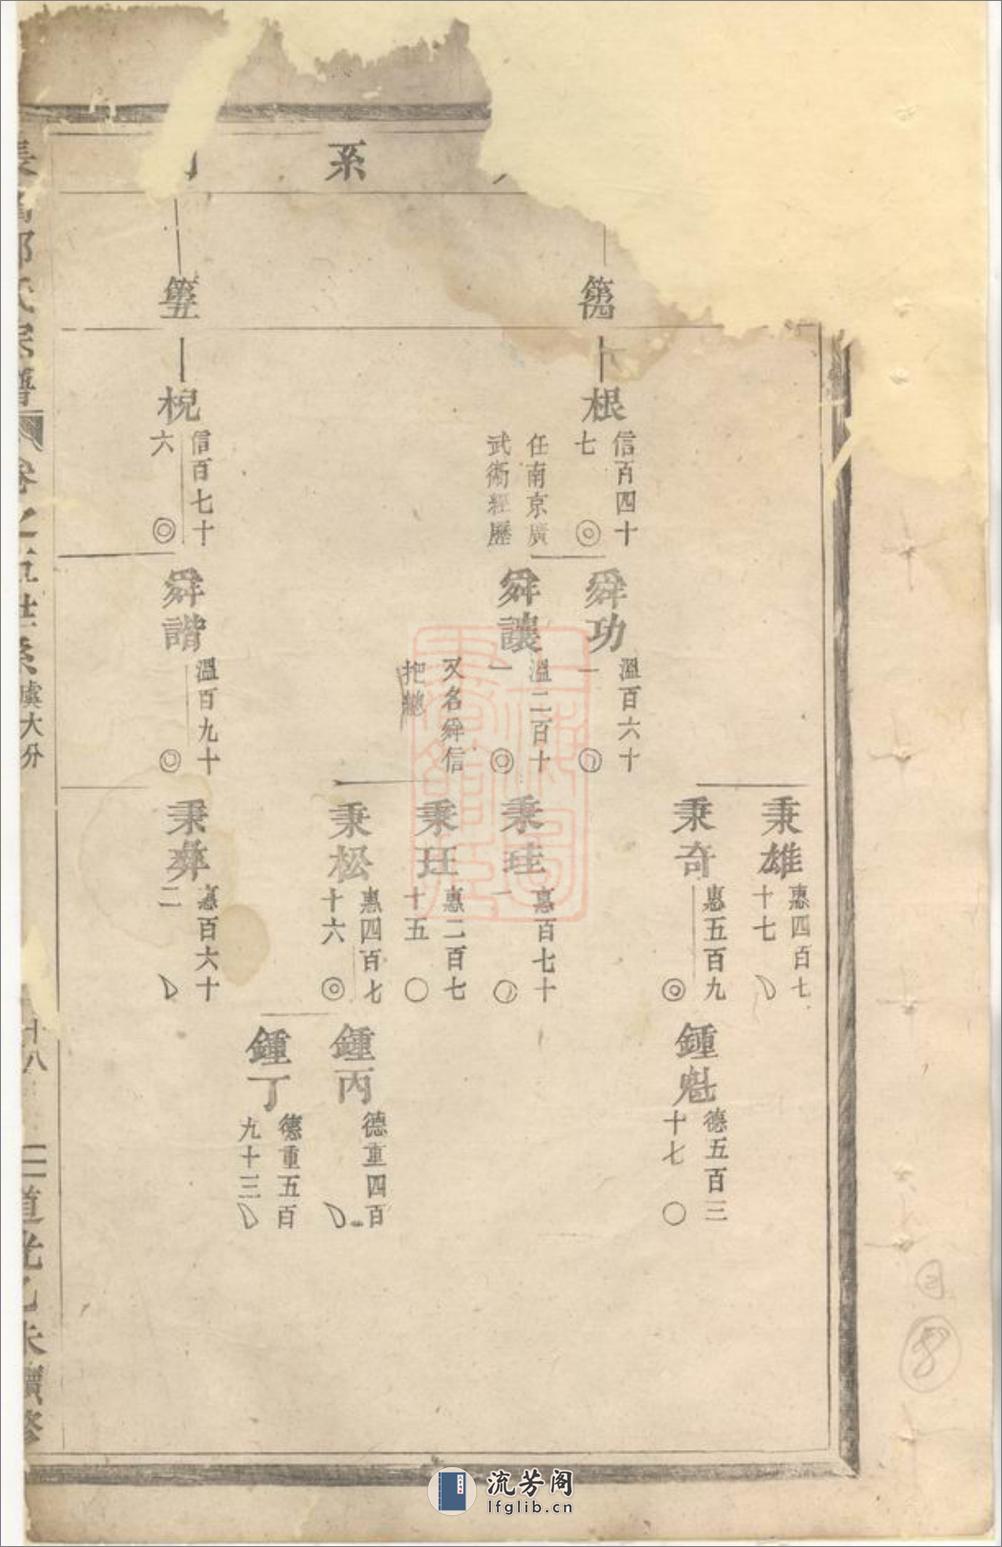 系
第四
根
信百四十
七
任南京廣
武衛經歷
舜功
溫百六十
一
舜讓
溫二百十
一
又名舜信
把總
秉雄
惠四百七
十七
秉奇
惠五百九
鍾魁
德五百三
十七
秉珪
惠百七十
一
秉玨
惠二百七
十五
秉松
惠四百七
十六
鍾丙
德重四百
鍾丁
德重五百
九十三
第五
棿
信百七十
六
舜諧
溫百九十
秉彞
惠百六十
二
氏宗譜
卷之五世系
虞大分
十八
道光乙未續修
8
流芳阁
lfglib.cn